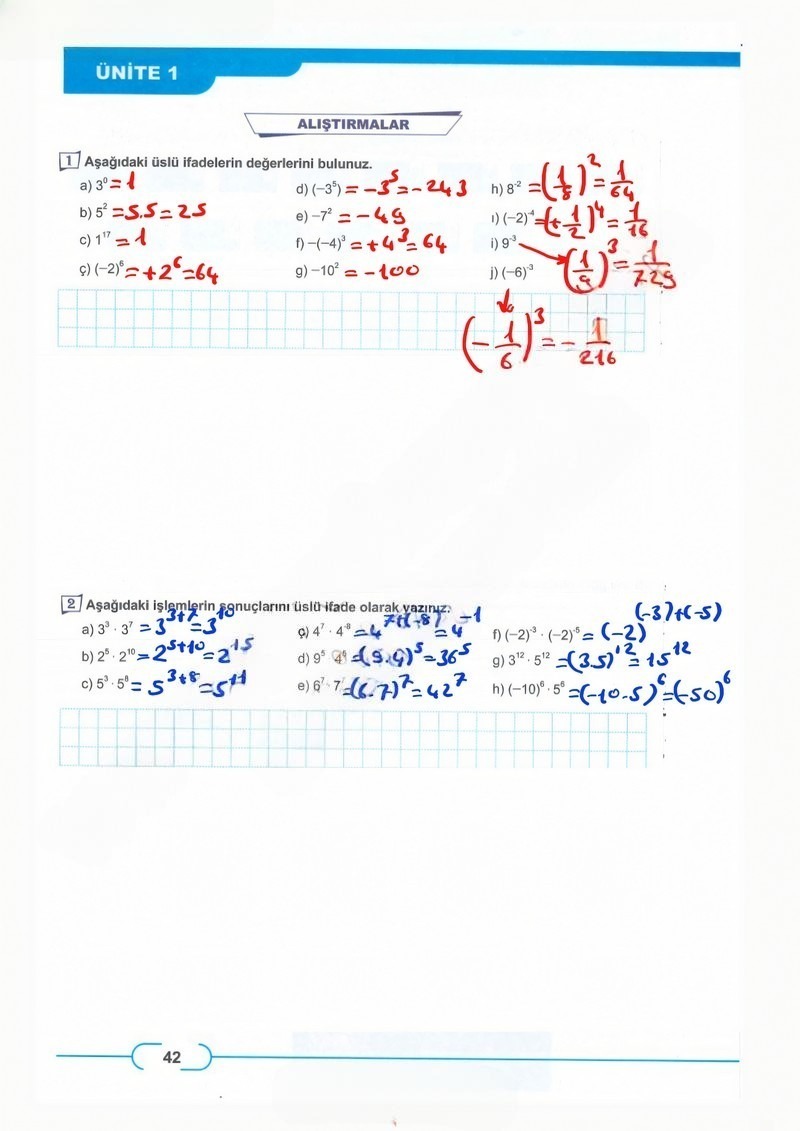 ÜNİTE 1
ALIŞTIRMALAR
1 Aşağıdaki üslü ifadelerin değerlerini bulunuz.
a) 3⁰ = 1
b) 5² = 5.5 = 25
c) 1¹⁷ = 1
ç) (−2)⁶ = +2⁶ = 64
d) (−3⁵) = −3⁵ = −243
e) −7² = −49
f) −(−4)³ = +4³ = 64
g) −10² = −100
h) 8⁻² = (1/8)² = 1/64
ı) (−2)⁻⁴ = (+1/2)⁴ = 1/16
i) 9⁻³ (1/9)³ = 1/729
j) (−6)⁻³
(−1/6)³ = −1/216
2 Aşağıdaki işlemlerin sonuçlarını üslü ifade olarak yazınız.
a) 3³ · 3⁷ = 3³⁺⁷ = 3¹⁰
b) 2⁵ · 2¹⁰ = 2⁵⁺¹⁰ = 2¹⁵
c) 5³ · 5⁸ = 5³⁺⁸ = 5¹¹
ç) 4⁷ · 4⁻⁸ = 4⁷⁺⁽⁻⁸⁾ = 4⁻¹
d) 9⁵ 4⁵ = (9.4)⁵ = 36⁵
e) 6⁷ 7⁷ = (6.7)⁷ = 42⁷
f) (−2)⁻³ · (−2)⁻⁵ = (−2)⁽⁻³⁾⁺⁽⁻⁵⁾
g) 3¹² · 5¹² = (3.5)¹² = 15¹²
h) (−10)⁶ · 5⁶ = (−10.5)⁶ = (−50)⁶
42